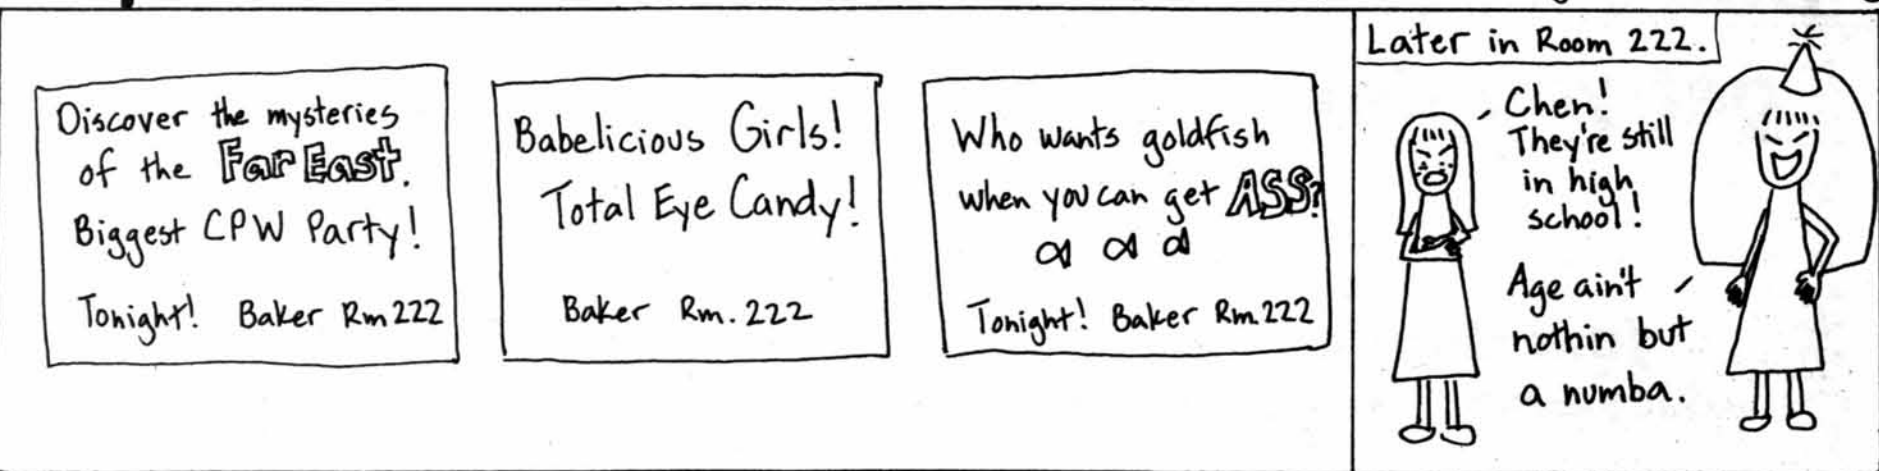 Discover the mysteries
of the Far East.
Biggest CPW Party!
Tonight! Baker Rm 222
Babelicious Girls!
Total Eye Candy!
Baker Rm. 222
Who wants goldfish
when you can get ASS?
Tonight! Baker Rm. 222
Later in Room 222.
Chen!
They're still
in high
school!
Age ain't
nothin but
a numba.